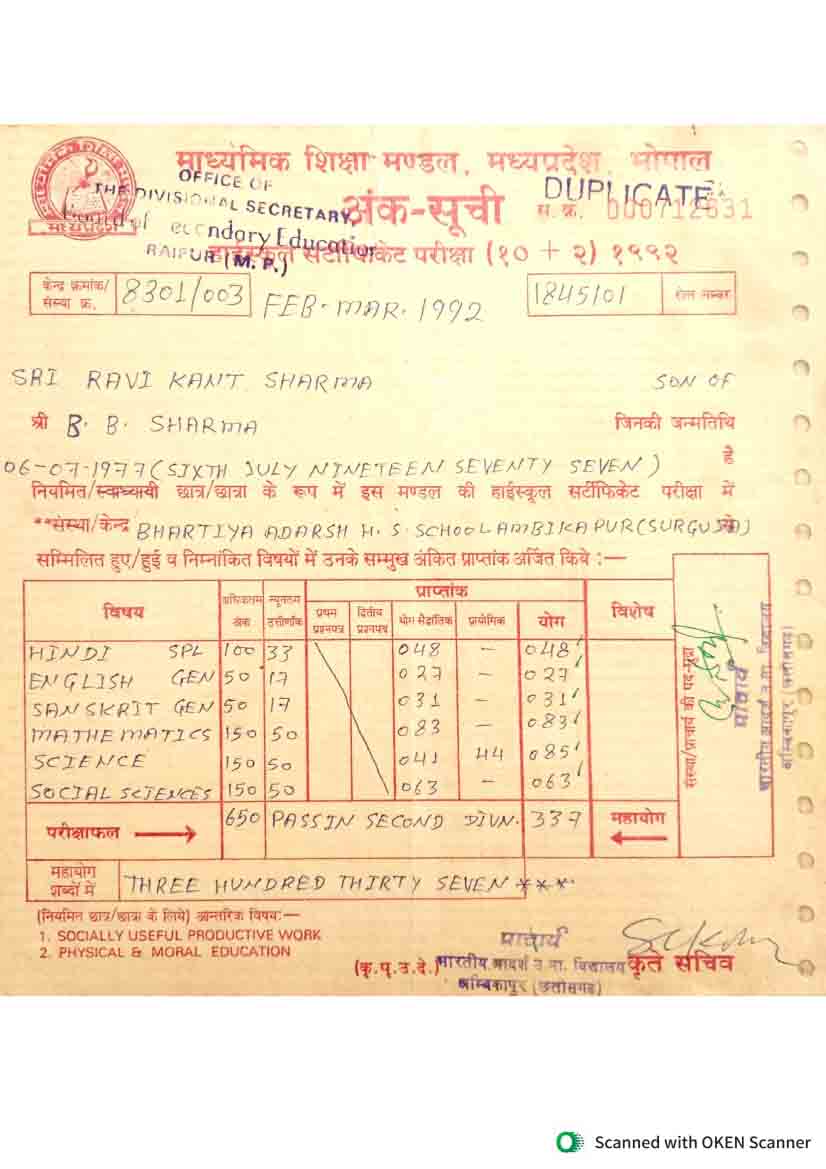 माध्यमिक शिक्षा मण्डल, मध्यप्रदेश, भोपाल
OFFICE OF
THE DIVISIONAL SECRETARY
Board of Secondary Education
RAIPUR (M. P.)
मध्यप्रदेश
अंक-सूची
DUPLICATE
स. क्र.
हाईस्कूल सर्टीफिकेट परीक्षा (१० + २) १९९२
केन्द्र क्रमांक/
संस्था क्र.
8301/003
FEB-MAR. 1992
1845101
रोल नम्बर
SRI RAVI KANT SHARMA SON OF
श्री B. B. SHARMA जिनकी जन्मतिथि
06-07-1977 (SIXTH JULY NINETEEN SEVENTY SEVEN) है
नियमित/स्वाध्यायी छात्र/छात्रा के रूप में इस मण्डल की हाईस्कूल सर्टीफिकेट परीक्षा में
**संस्था/केन्द्र BHARTIYA ADARSH H. S. SCHOOL AMBIKAPUR (SURGUJA) से
सम्मिलित हुए/हुई व निम्नांकित विषयों में उनके सम्मुख अंकित प्राप्तांक अर्जित किये :—
विषय अधिकतम अंक न्यूनतम उत्तीर्णांक प्राप्तांक विशेष
प्रथम प्रश्नपत्र द्वितीय प्रश्नपत्र योग सैद्धांतिक प्रायोगिक योग
HINDI SPL 100 33 048 – 048
ENGLISH GEN 50 17 027 – 027
SANSKRIT GEN 50 17 031 – 031
MATHEMATICS 150 50 083 – 083
SCIENCE 150 50 041 44 085
SOCIAL SCIENCES 150 50 063 – 063
परीक्षाफल 650 PASS IN SECOND DIVN. 337 महायोग
महायोग
शब्दों में
THREE HUNDRED THIRTY SEVEN ***
संस्था/प्राचार्य की पद-मुद्रा
प्राचार्य
भारतीय आदर्श उ.मा. विद्यालय
अम्बिकापुर (छत्तीसगढ़)
(नियमित छात्र/छात्रा के लिये) आन्तरिक विषय:—
1. SOCIALLY USEFUL PRODUCTIVE WORK
2. PHYSICAL & MORAL EDUCATION
प्राचार्य
(कृ.पृ.उ.दे.) भारतीय आदर्श उ. मा. विद्यालय कृते सचिव
अम्बिकापुर (छत्तीसगढ़)
Scanned with OKEN Scanner